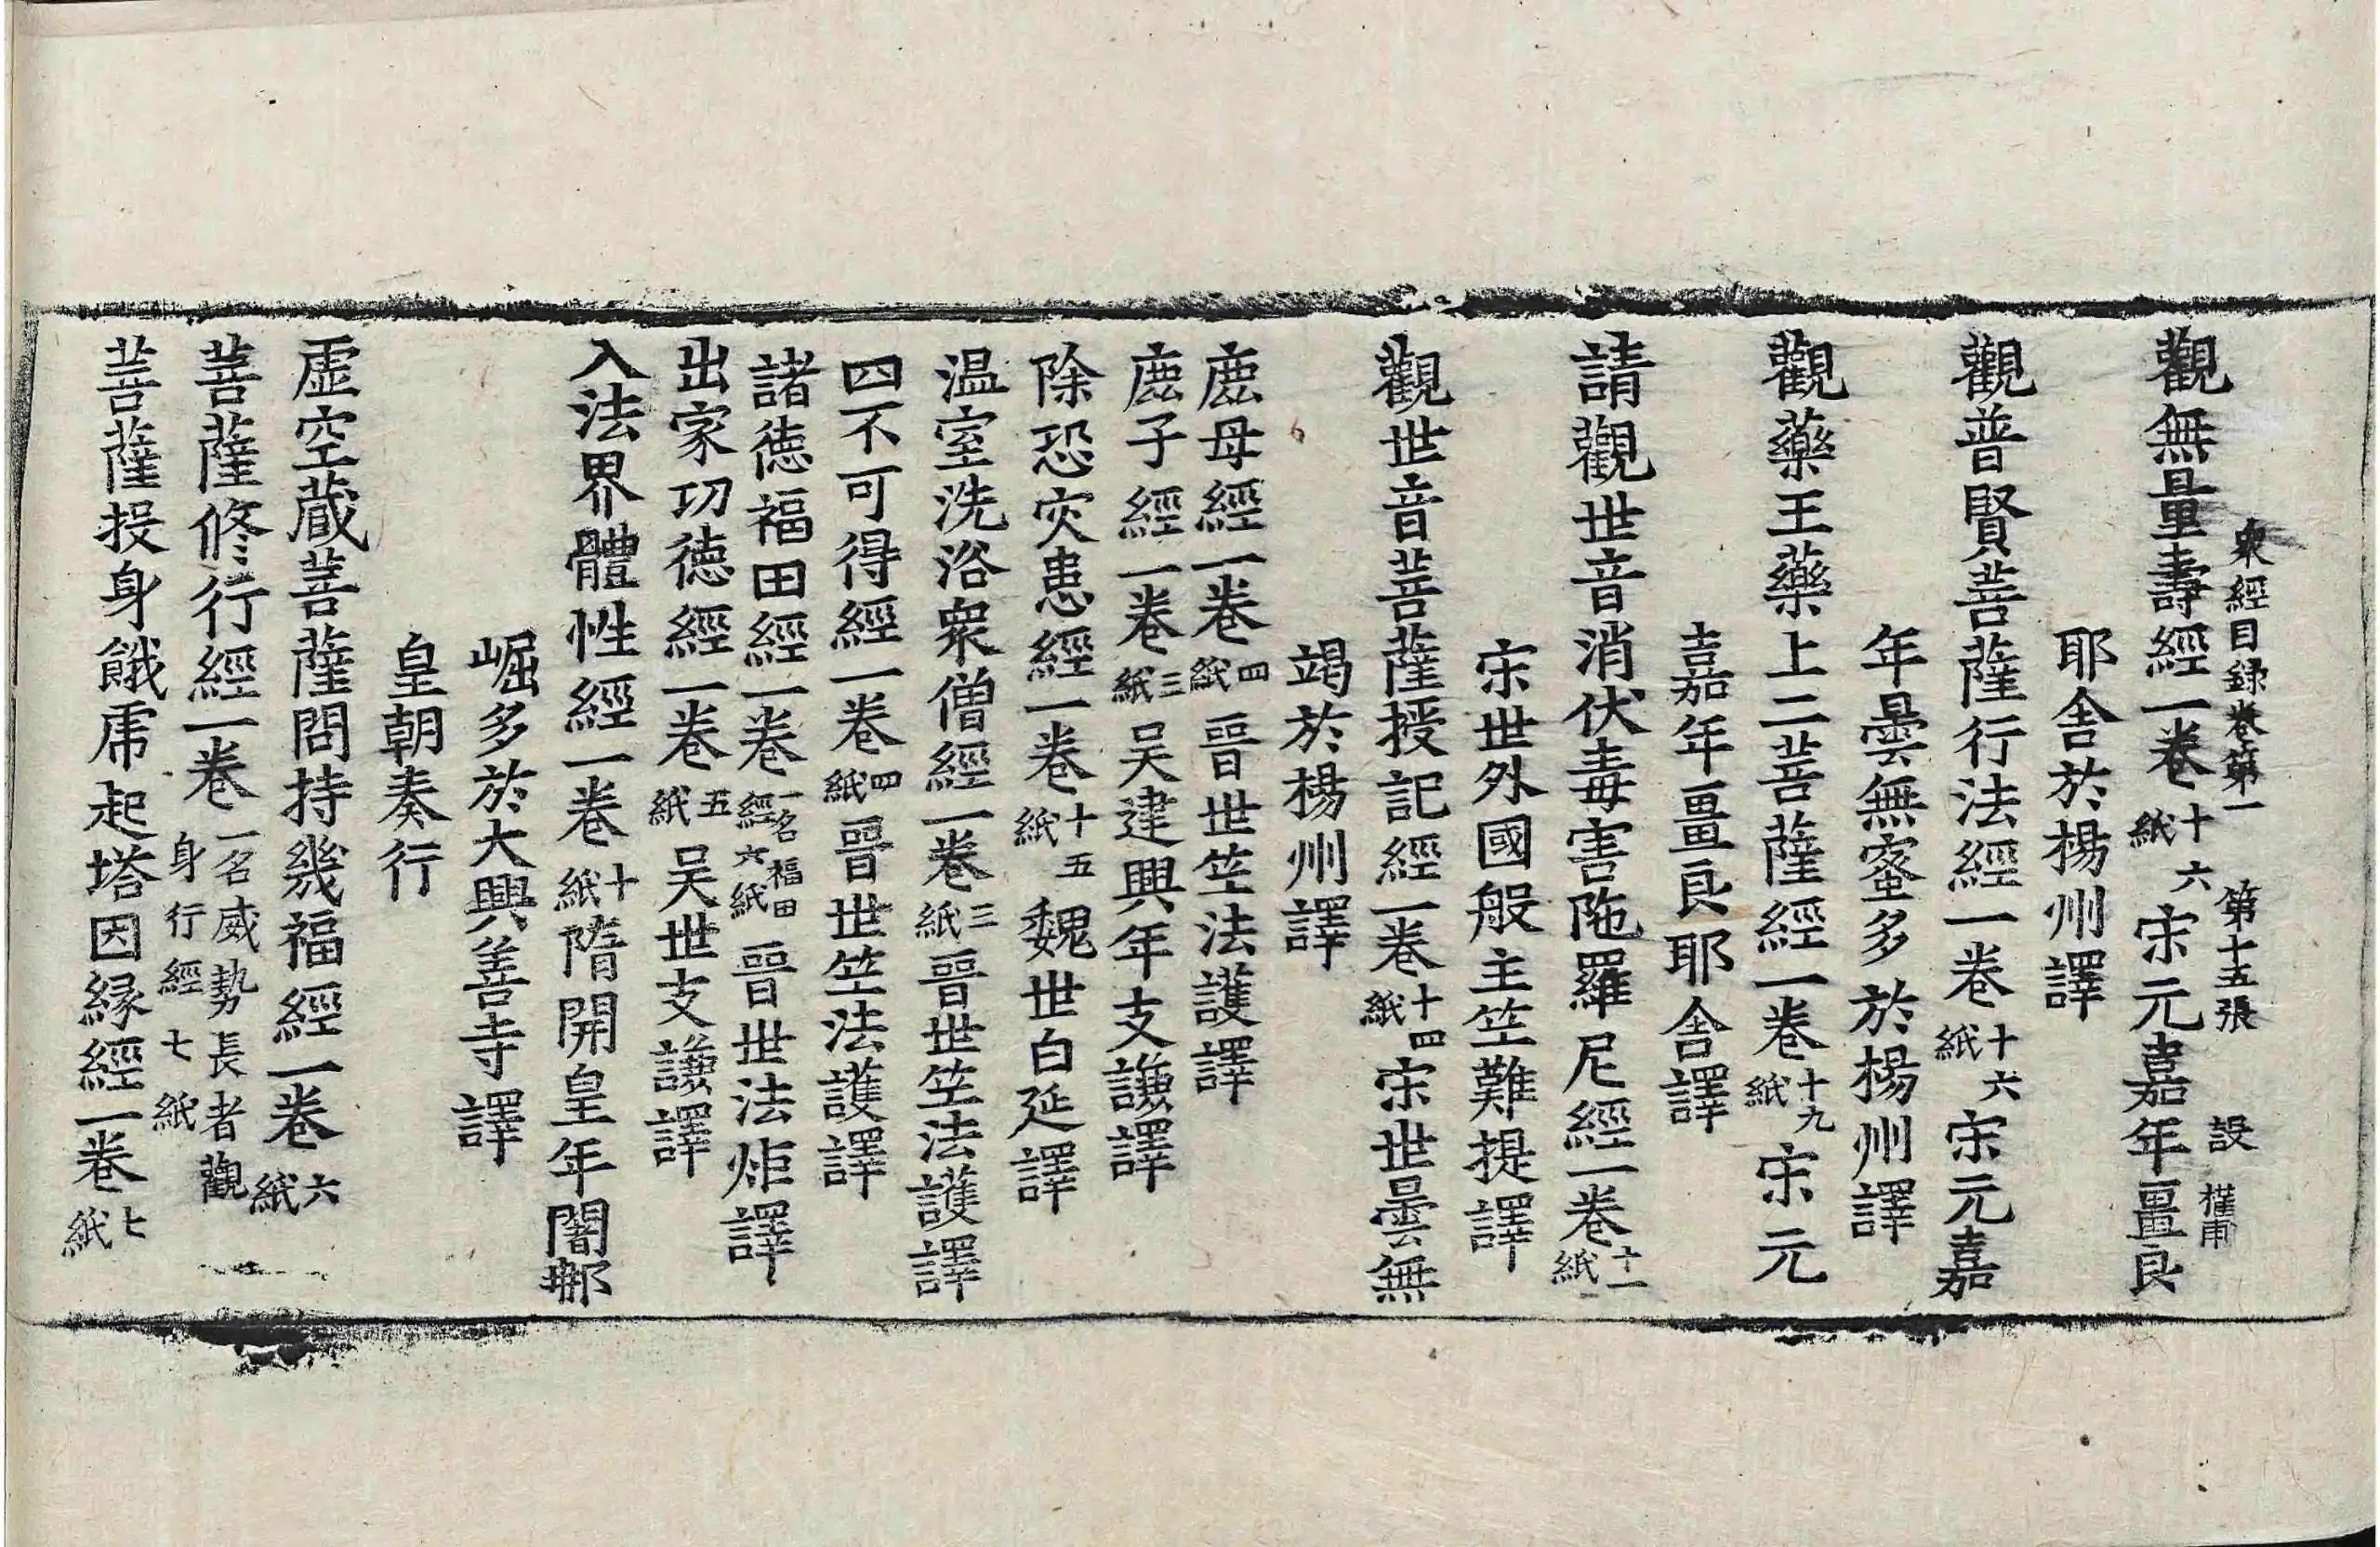 衆經目録卷第一 第十五張 設
觀無量壽經一卷十六紙宋元嘉年畺良
耶舍於楊州譯
觀普賢菩薩行法經一卷十六紙宋元嘉
年曇無蜜多於楊州譯
觀藥王藥上二菩薩經一卷十九紙宋元
嘉年畺良耶舍譯
請觀世音消伏毒害陁羅尼經一卷十一紙
宋世外國般主竺難提譯
觀世音菩薩授記經一卷十四紙宋世曇無
竭於楊州譯
鹿母經一卷四紙晉世竺法護譯
鹿子經一卷三紙吴建興年支謙譯
除恐灾患經一卷十五紙魏世白延譯
温室洗浴衆僧經一卷三紙晉世竺法護譯
四不可得經一卷四紙晉世竺法護譯
諸徳福田經一卷一名福田經六紙晉世法炬譯
出家功徳經一卷五紙吴世支謙譯
入法界體性經一卷十紙隋開皇年闍那
崛多於大興善寺譯
皇朝奏行
虚空藏菩薩問持幾福經一卷六紙
菩薩修行經一卷一名威勢長者觀身行經七紙
菩薩投身餓虎起塔因縁經一卷七紙